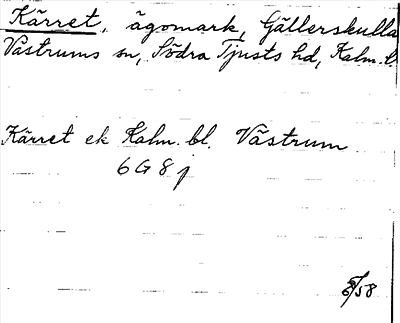 Kärret, ägomark, Gällerskulla
Västrums sn, Södra Tjusts hd, Kalm. l.
Kärret ek Kalm. bl. Västrum
6 G 8 j
/58